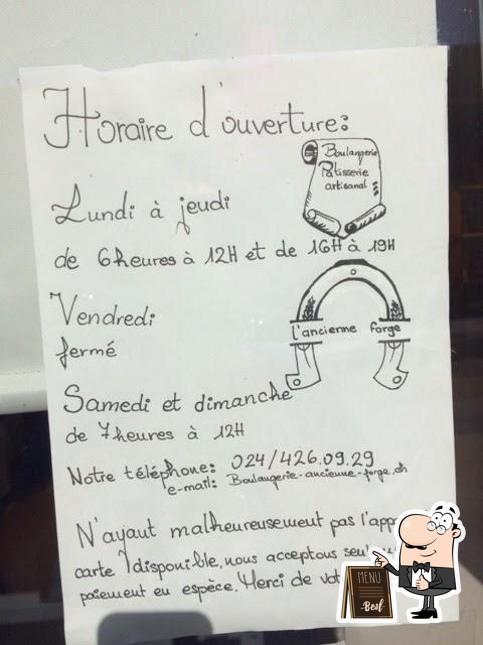 Horaire d'ouverture:
Boulangerie
Pâtisserie
artisanal
Lundi à jeudi
de 6heures à 12H et de 16H à 19H
Vendredi
fermé
l'ancienne forge
Samedi et dimanche
de 7heures à 12H
Notre téléphone: 024/426.09.29
e-mail: Boulangerie-ancienne-forge.ch
N'ayant malheureusement pas l'app
carte disponible, nous acceptons
paiement en espèce. Merci de
MENU
Best